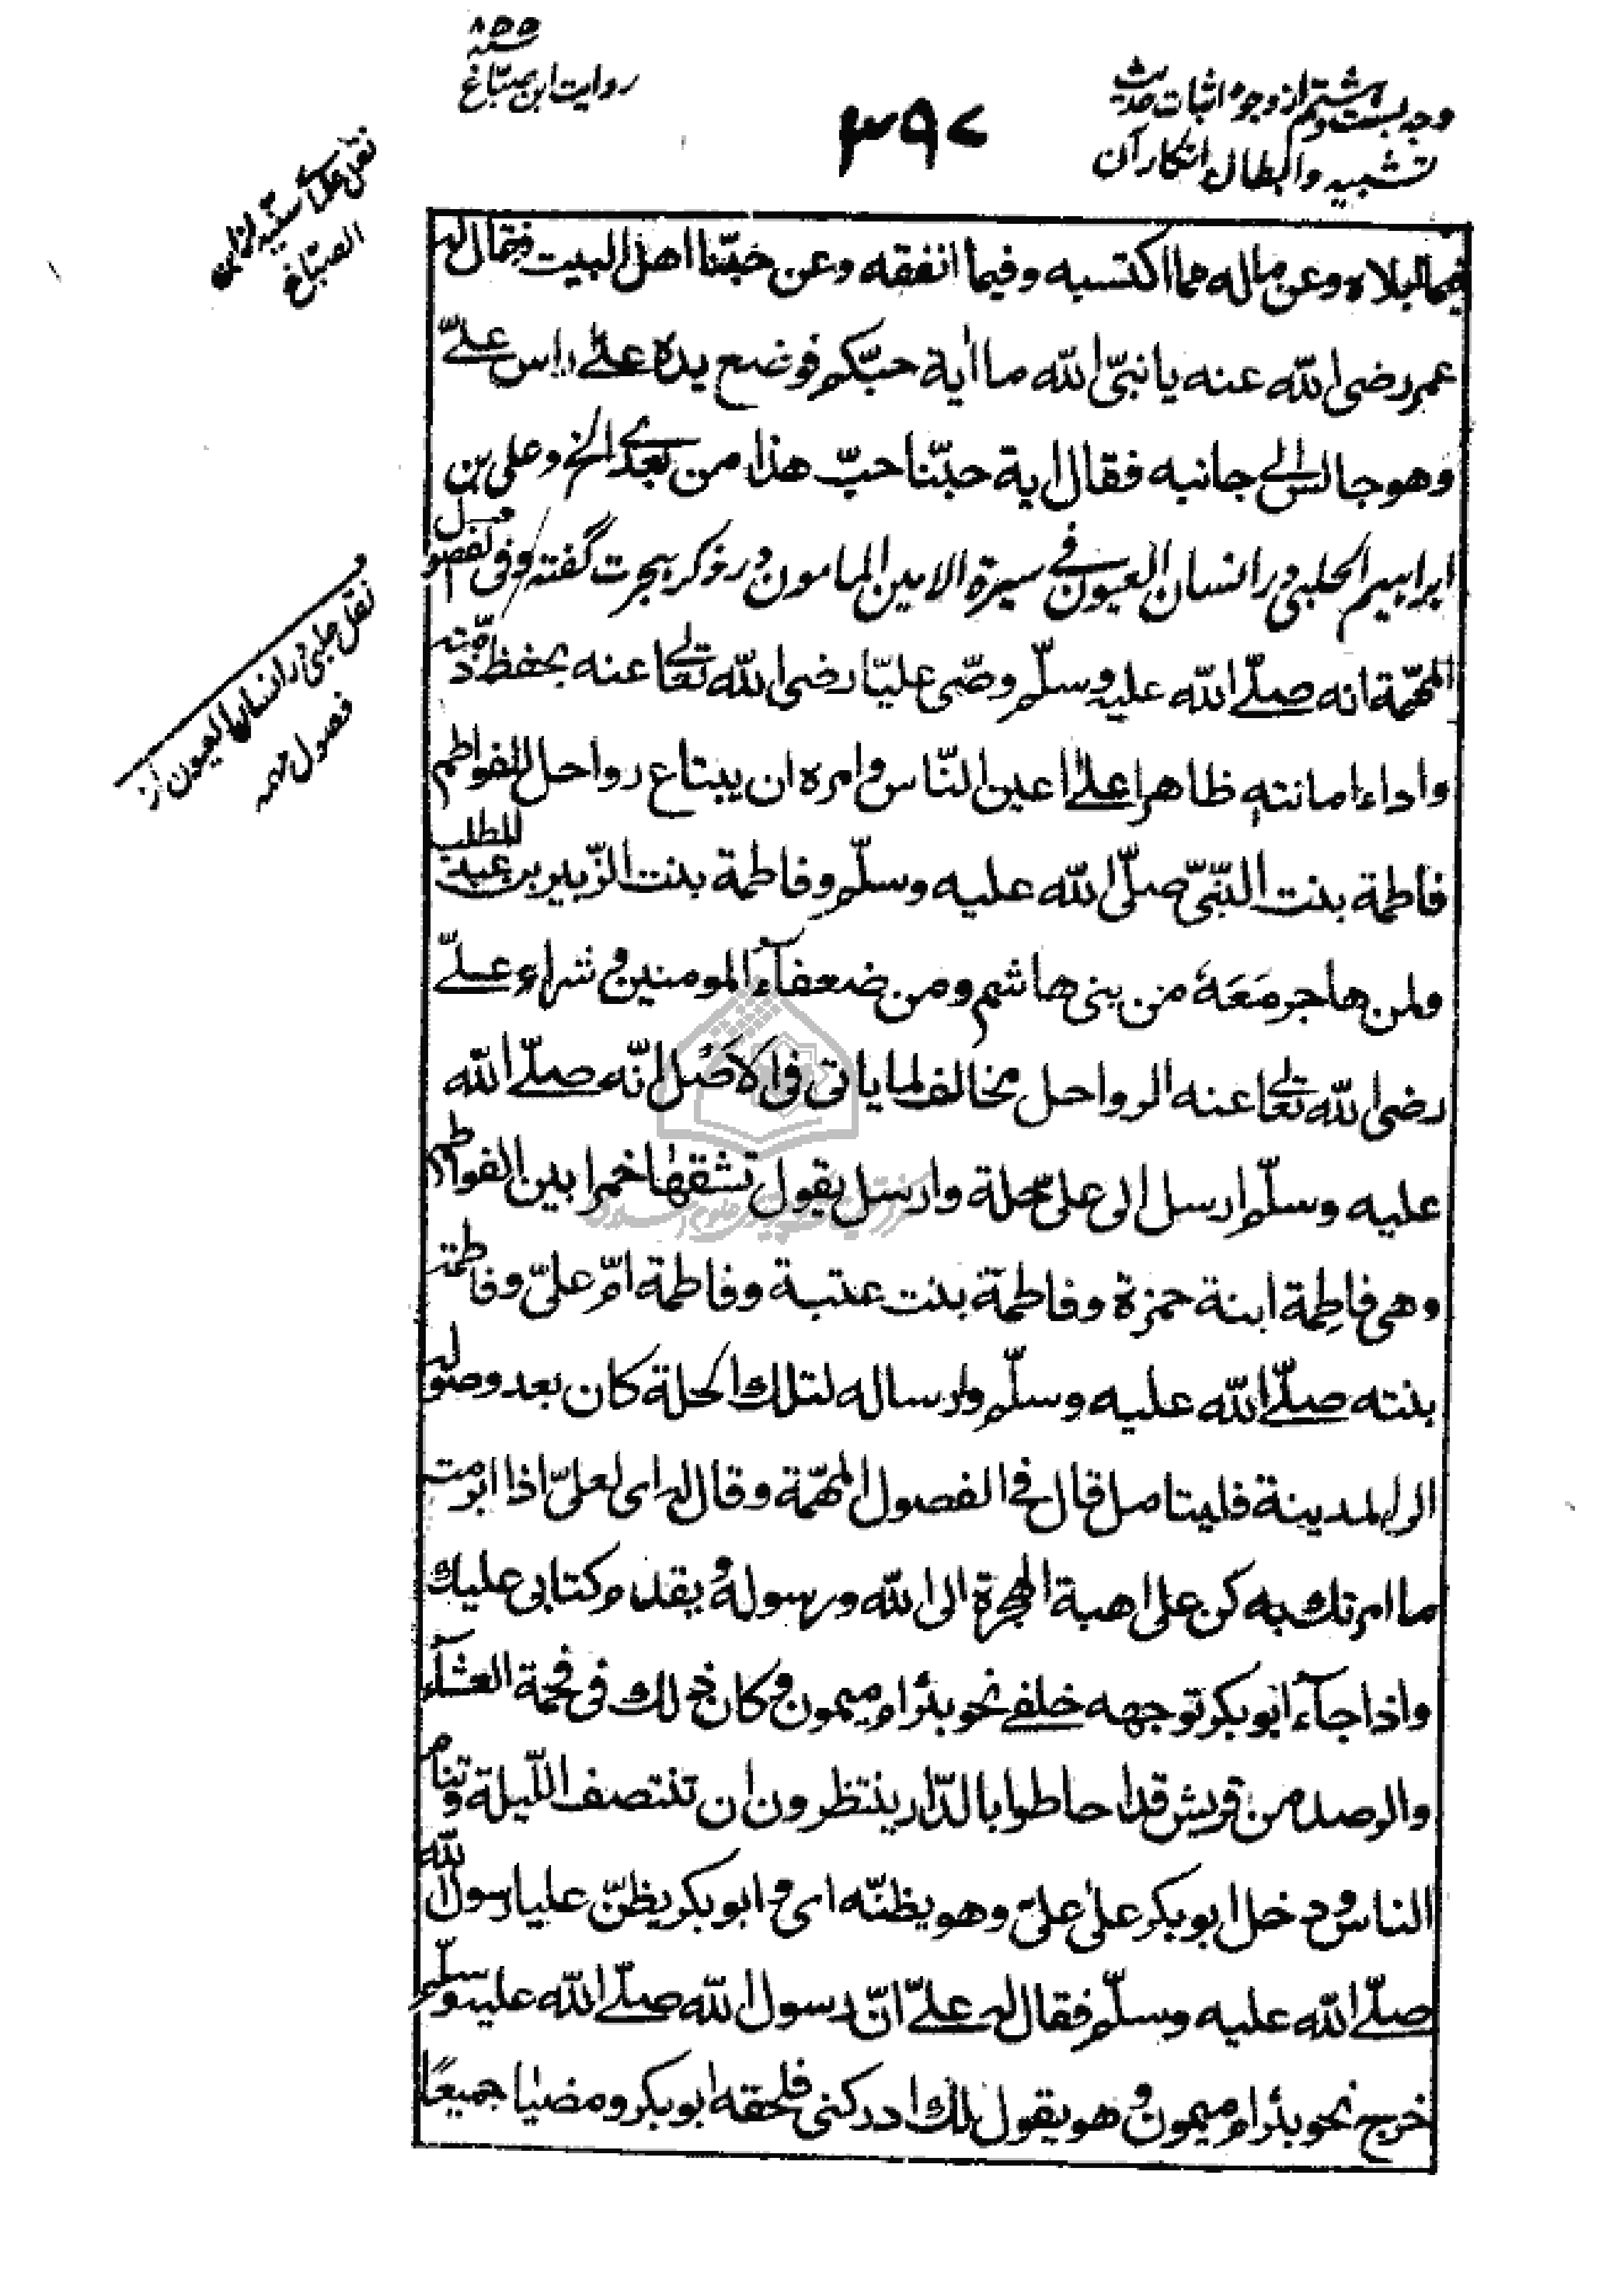 سنه ۸۵۵
روایت ابن صبّاغ
۳۹۷
وجه بست و هشتم از وجوه اثبات حدیث
تشبیه و ابطال انکار آن
نقل علمای سنّیه از ابن
الصبّاغ
فیما ابلاه وعن ماله مما اکتسبه وفیما انفقه وعن حبّنا اهل البیت فقال له
عمر رضی الله عنه یا نبیّ الله ما اٰیة حبّکم فوضع یده علی راس علیّ
وهو جالس الی جانبه فقال اٰیة حبّنا حبّ هذا من بعدی الخ و علی بن
ابراہیم الحلبی در انسان العیون فی سیرة الامین المامون در ذکر ہجرت گفته وفی الفصول
المهمّة انه صلّی الله علیه وسلّم وصّی علیّا رضی الله تعالی عنه بحفظ ذمّته
واداء امانته ظاهرا علی اعین النّاس وامره ان یبتاع رواحل للفواطم
فاطمة بنت النبّی صلّی الله علیه وسلّم وفاطمة بنت الزّبیر بن عبد المطلب
ولمن هاجر مَعَهُ من بنی هاشم ومن ضعفآء المومنین وشراء علیّ
رضی الله تعالی عنه الرواحل مخالف لما یاتی فی الاَصْل انّه صلّی الله
علیه وسلّم ارسل الی علیّ بحلة وارسل یقول تشقها خمرا بین الفواطم
وهی فاطِمة ابنة حمزة وفاطمة بنت عتبة وفاطمة امّ علیّ وفاطمة
بنته صلّی الله علیه وسلّم وارساله لتلك الحلة کان بعد وصوله
الی المدینة فلیتامل قال فی الفصول المهمّة وقال له ای لعلیّ اذا ابرمت
ما امرتك به کن علی اهبة الهجرة الی الله ورسوله وبقدوم کتابی علیك
واذا جآء ابو بکر توجهه خلفی نحو بئر ام میمون وکان ذلك فی فحمة العشآء
والرصد من قریش قد احاطوا بالدّار ینتظرون ان تنتصف اللّیلة وتنام
الناس ودخل ابو بکر علی علیّ وهو یظنّه ای وابو بکر یظنّ علیا رسول الله
صلّی الله علیه وسلّم فقال له علیّ انّ رسول الله صلّی الله علیه وسلّم
خرج نحو بئر ام میمون وهو یقول لك ادرکنی فلحقه ابو بکر ومضیا جمیعًا
نقل حلبی در انسان العیون از
فصول مهمه